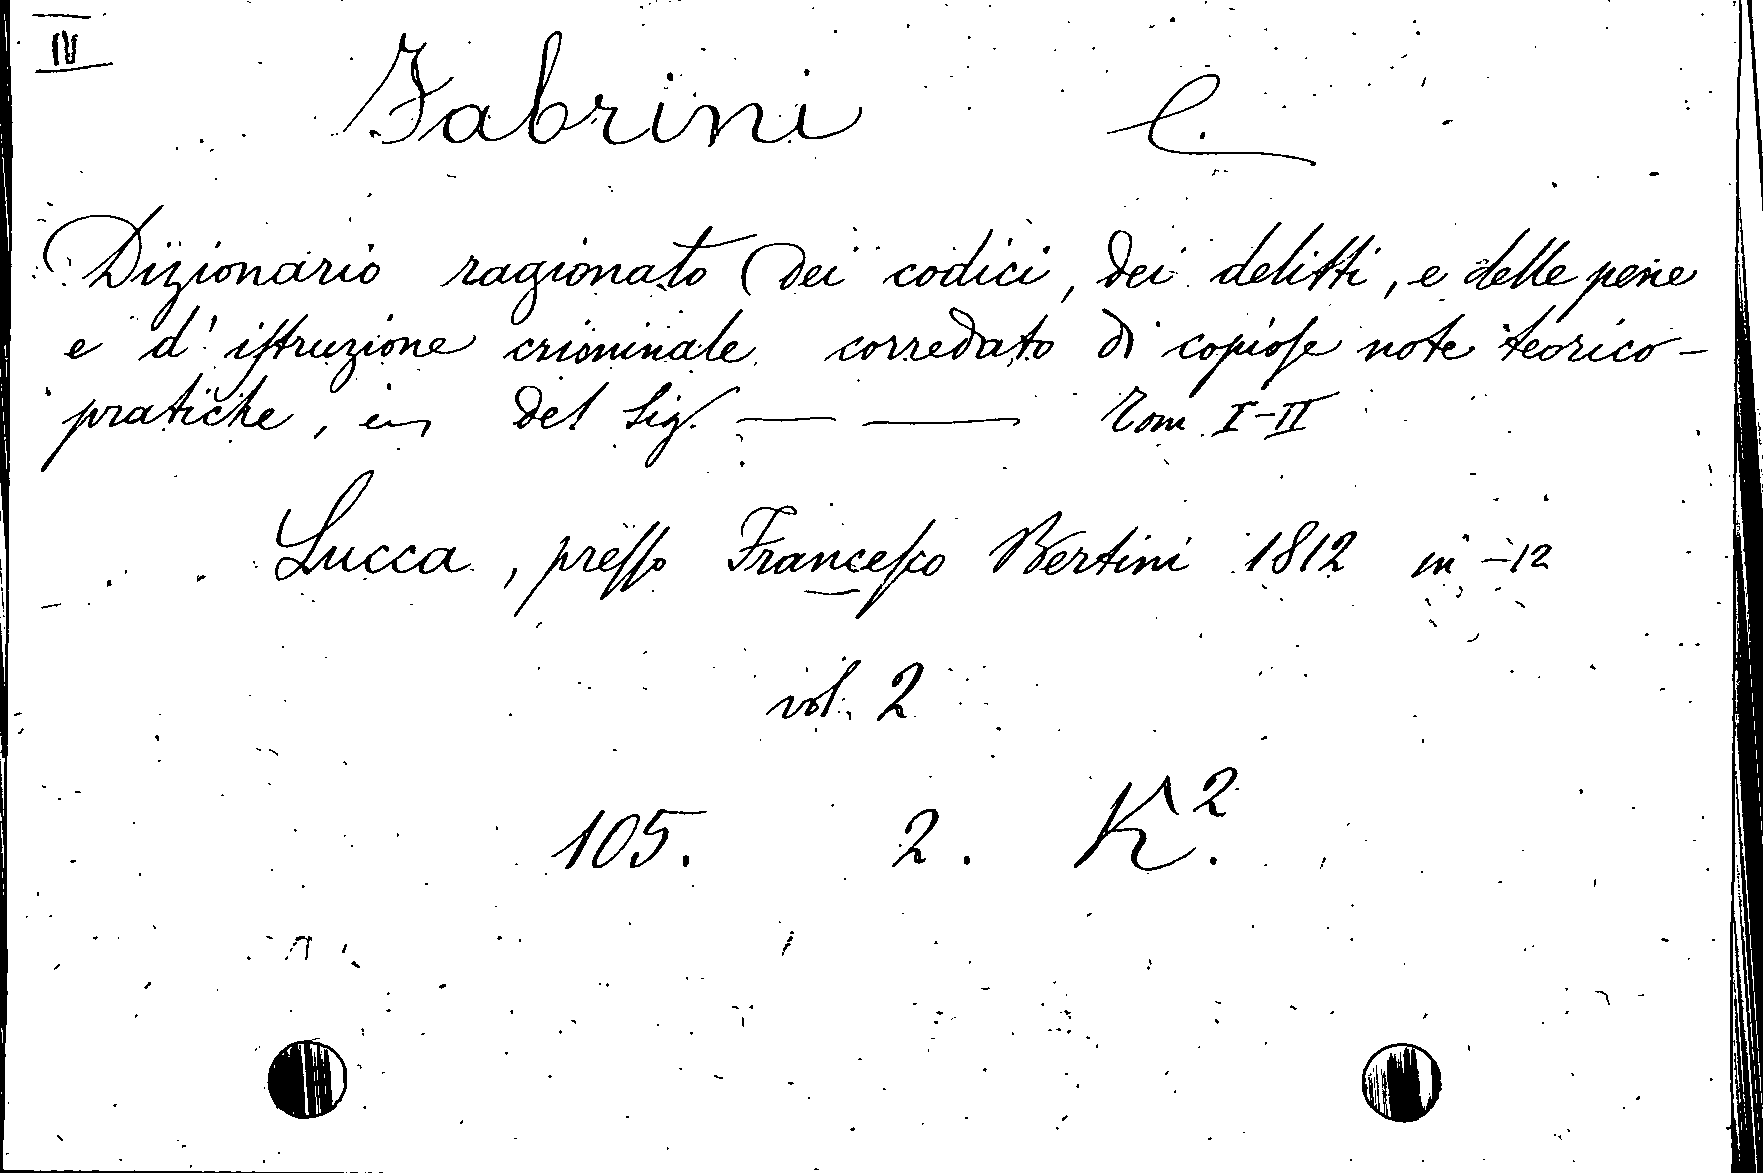 IV
Fabrini C.
Dizionario ragionato dei codici, dei delitti, e delle pene
e d'istruzione criminale corredato di copiose note teorico-
pratiche, del Sig. — — Tom I-II
Lucca, presso Francesco Bertini 1812 in-12
vol. 2
105. 2. K².